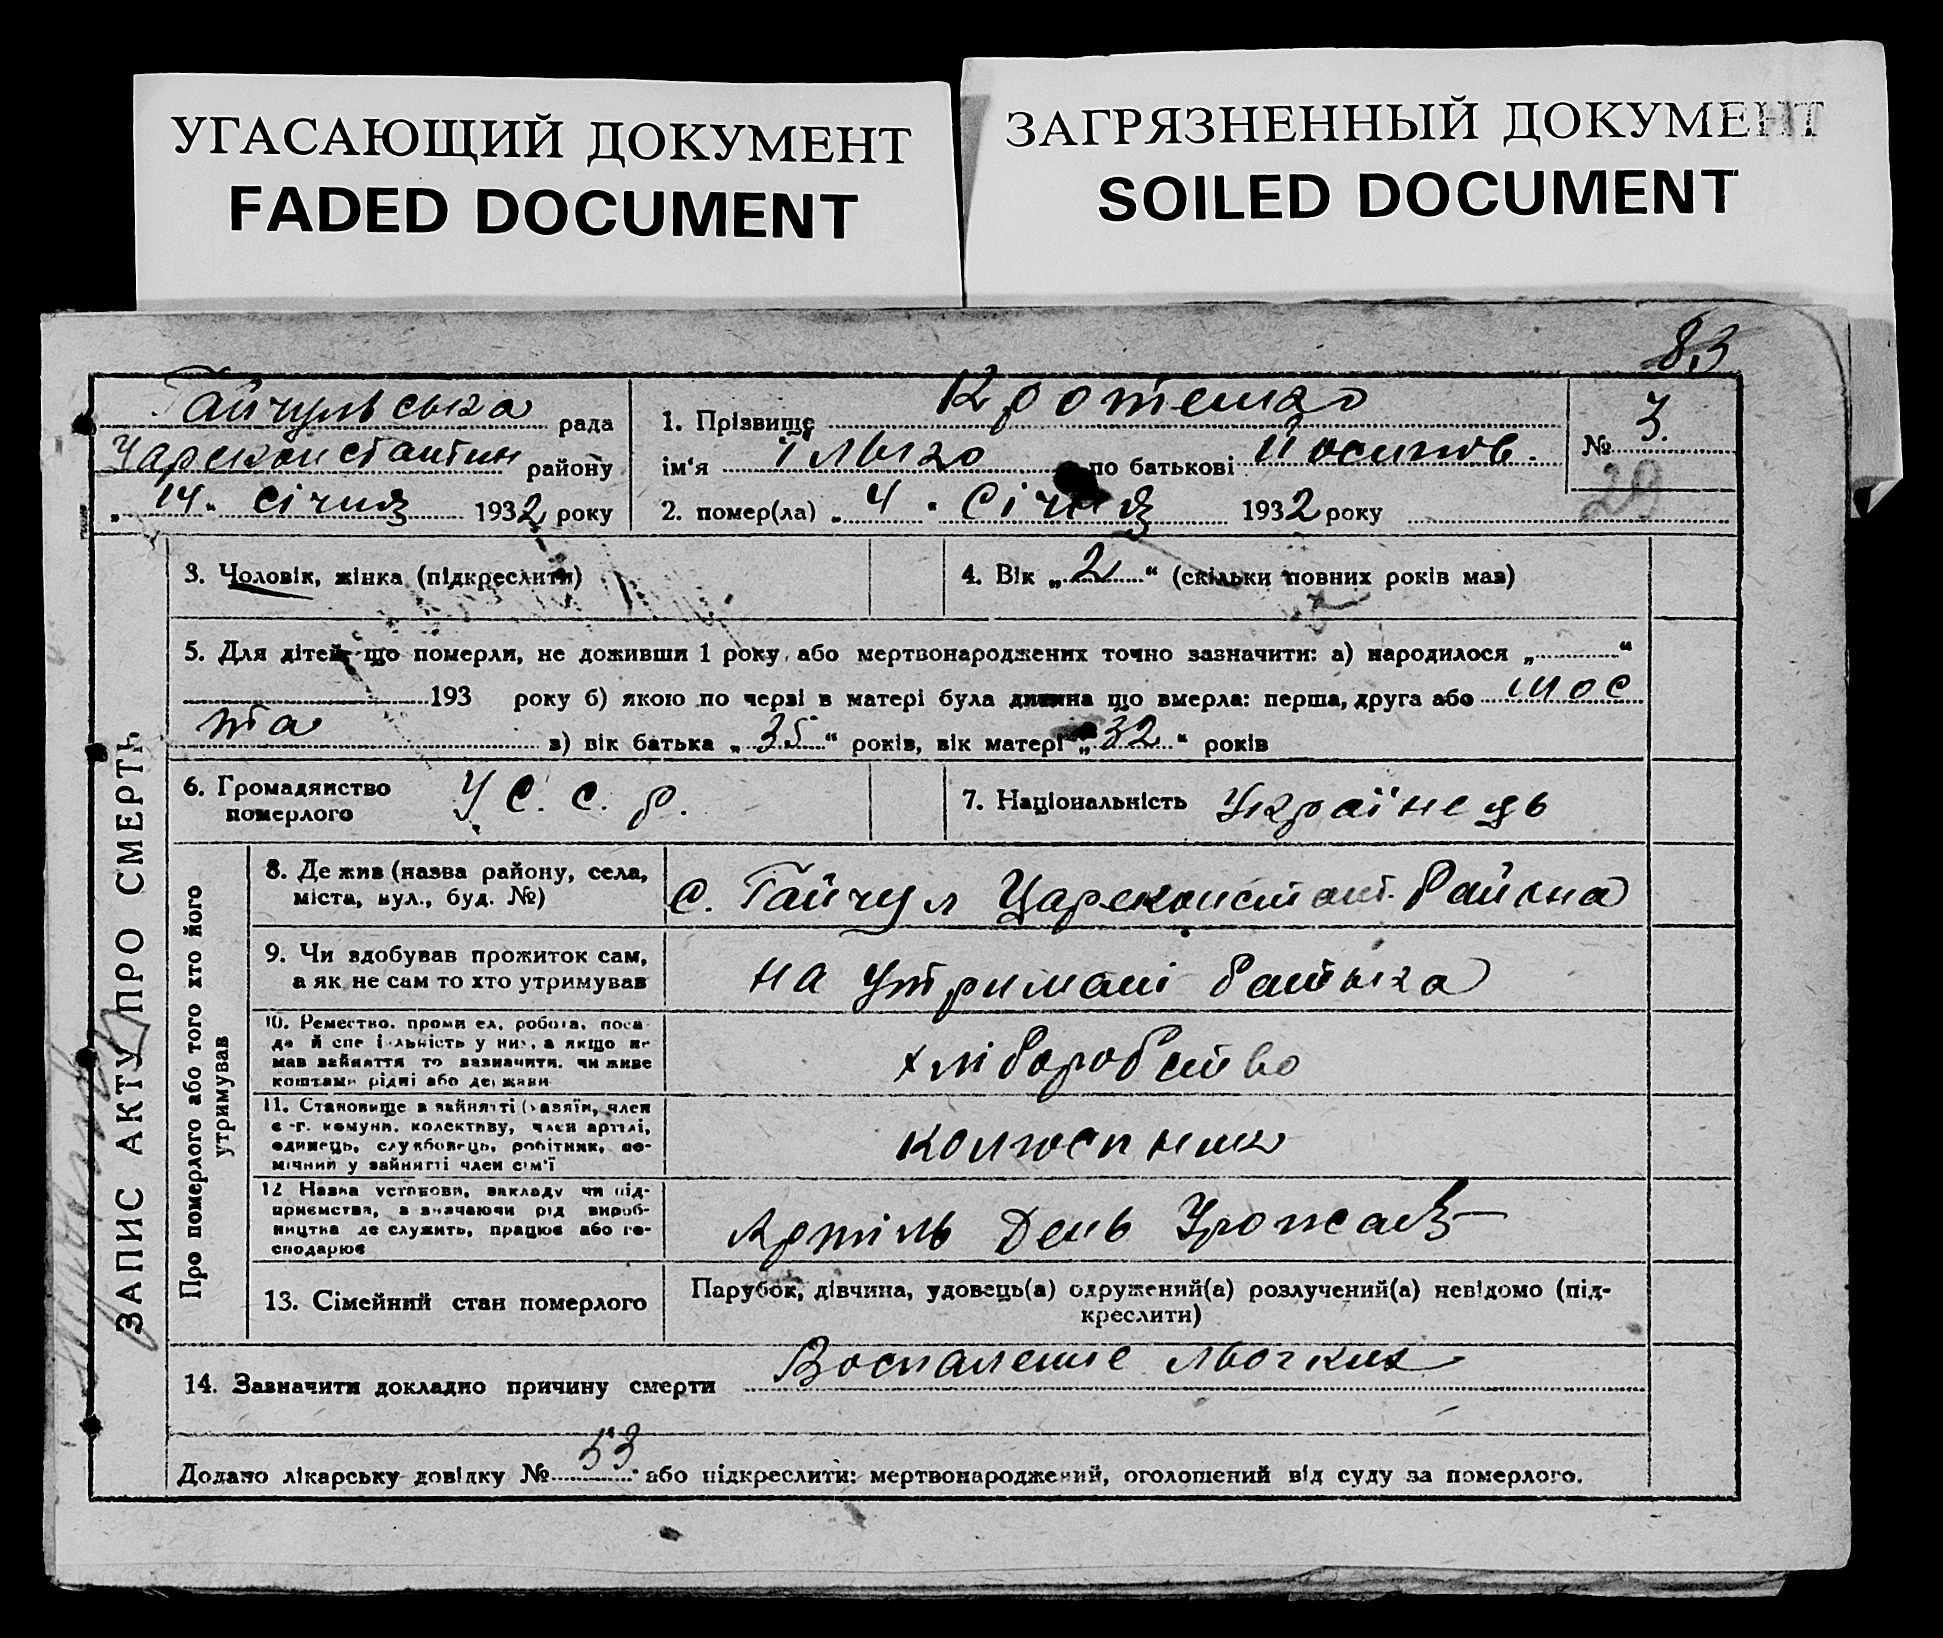 УГАСАЮЩИЙ ДОКУМЕНТ
FADED DOCUMENT
ЗАГРЯЗНЕННЫЙ ДОКУМЕНТ
SOILED DOCUMENT
83
Гайчульська рада
Царсконстантин району
„ 14 “ січня 1932 року
1. Прізвище Кротенко
ім'я Ілько по батькові Йосипов.
2. помер(ла) „ 4 “ Січня 1932 року
№ 3.
29
ЗАПИС АКТУ ПРО СМЕРТЬ
3. Чоловік, жінка (підкреслити)
4. Вік „ 2 “ (скільки повних років мав)
5. Для дітей що померли, не доживши 1 року, або мертвонароджених точно зазначити: а) народилося „ “
193 року б) якою по черзі в матері була дитина що вмерла: перша, друга або шос
та в) вік батька „ 35 “ років, вік матері „ 32 “ років
6. Громадянство
померлого
У С. С. р.
7. Національність Українець
Про померлого або того хто його
утримував
8. Де жив (назва району, села,
міста, вул., буд. №)
с. Гайчул Царсконстант. Района
9. Чи здобував прожиток сам,
а як не сам то хто утримував
на утримані батька
10. Ремество, промисел, робота, поса
да й спеціяльність у них, а якщо не
мав зайняття то зазначити, чи живе
коштами рідні або держави
хліборобство
11. Становище в зайнятті (хазяїн, член
с.-г. комуни, колективу, член артілі,
одинець, службовець, робітник, по-
мічний у зайнятті член сім'ї
колгоспник
12 Назва установи, закладу чи під-
приємства, зазначаючи рід вироб-
ництва де служить, працює або го-
сподарює
Артіль День Урожая
13. Сімейний стан померлого
Парубок, дівчина, удовець(а) одружений(а) розлучений(а) невідомо (під-
креслити)
14. Зазначити докладно причину смерти Воспаление льогких
Додано лікарську довідку № 53 або підкреслити: мертвонароджений, оголошений від суду за померлого.